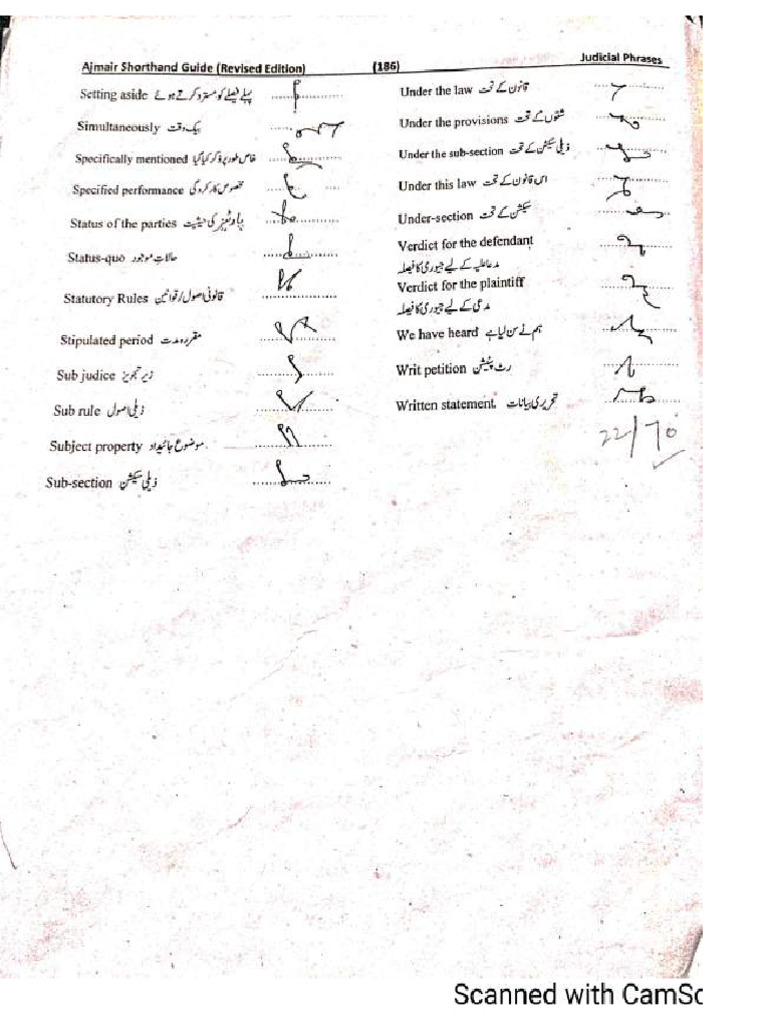 Ajmair Shorthand Guide (Revised Edition) (186) Judicial Phrases
Setting aside پہلے فیصلے کو مسترد کرتے ہوئے
Simultaneously یک وقت
Specifically mentioned خاص طور پر ذکر کیا گیا
Specified performance مخصوص کارکردگی
Status of the parties پارٹیز کی حیثیت
Status-quo حالات موجود
Statutory Rules قانونی اصول/قوانین
Stipulated period مقررہ مدت
Sub judice زیر تجویز
Sub rule ذیلی اصول
Subject property موضوع جائیداد
Sub-section ذیلی سیکشن
Under the law قانون کے تحت
Under the provisions شقوں کے تحت
Under the sub-section ذیلی سیکشن کے تحت
Under this law اس قانون کے تحت
Under-section سیکشن کے تحت
Verdict for the defendant
مدعاعلیہ کے لیے جیوری کا فیصلہ
Verdict for the plaintiff
مدعی کے لیے جیوری کا فیصلہ
We have heard ہم نے سن لیا ہے
Writ petition رٹ پٹیشن
Written statement. تحریری بیانات
22/70
Scanned with CamSc